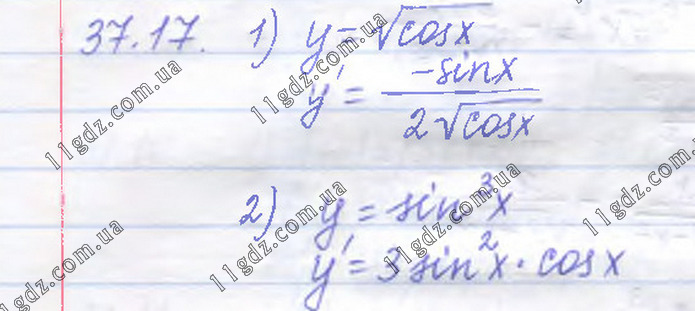 37.17. 1) y = √cosx
y' = -sinx / 2√cosx
2) y = sin³x
y' = 3sin²x · cosx
11gdz.com.ua
11gdz.com.ua
11gdz.com.ua
11gdz.com.ua
11gdz.com.ua
11gdz.com.ua
11gdz.com.ua